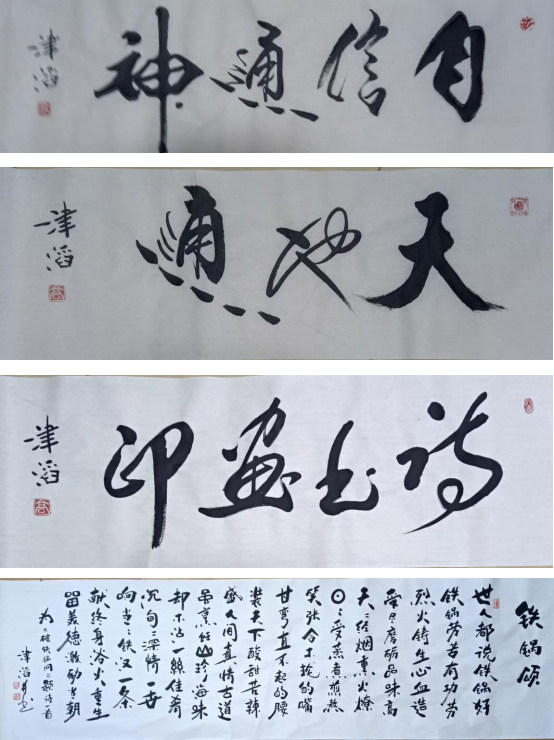 自信通神
津滔
天地通
津滔
诗书画印
津滔
铁锅颂
世人都说铁锅好
铁锅劳苦有功劳
烈火铸生心血造
受尽磨砺品味高
天天经烟熏火燎
日日受蒸煮煎熬
笑张合不拢的嘴
甘弯直不起的腰
装天下酸甜苦辣
盛人间真情古道
虽烹经山珍海味
却不沾一丝佳肴
沉甸甸深情一世
响当当铁汉一条
献终身浴火重生
留美德激励朝
为破铁锅题诗一首
津滔